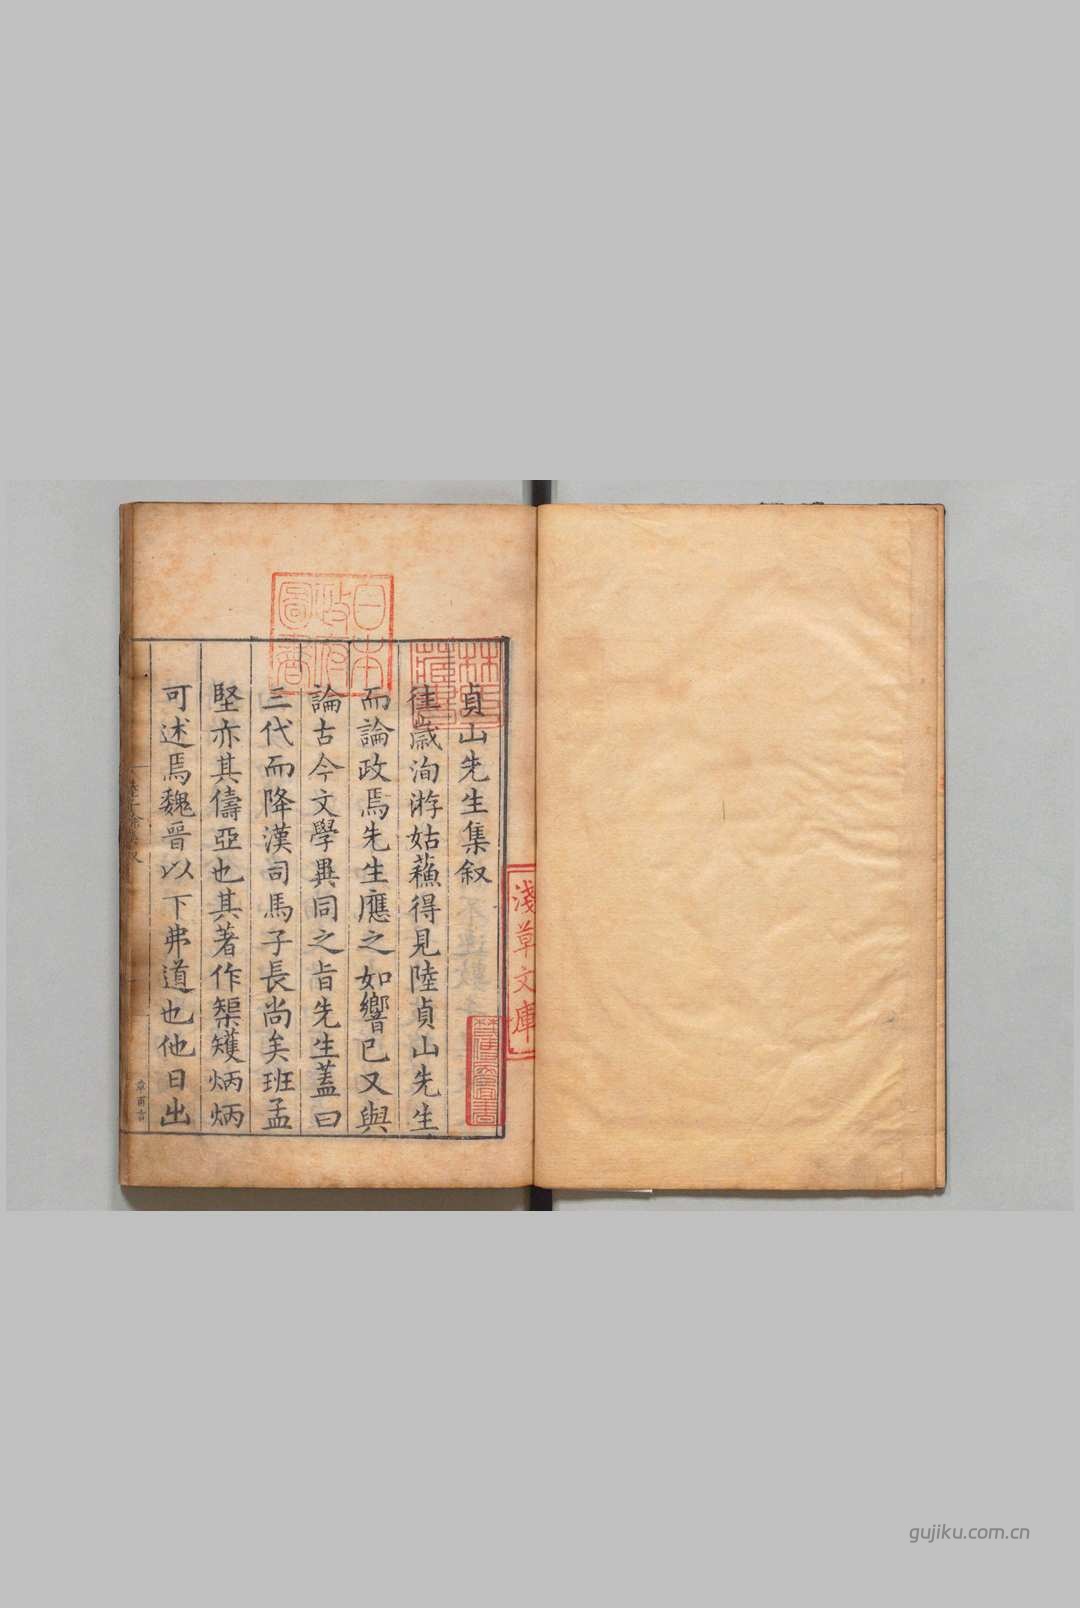 貞山先生集叙
徃歳洵游姑蘓得見陸貞山先生
而論政焉先生應之如響已又與
論古今文學異同之旨先生蓋曰
三代而降漢司馬子長尚矣班孟
堅亦其儔亞也其著作榘矱炳炳
可述焉魏晉以下弗道也他日出
日本
政府
圖書
林氏
藏書
淺草文庫
章甫言
gujiku.com.cn